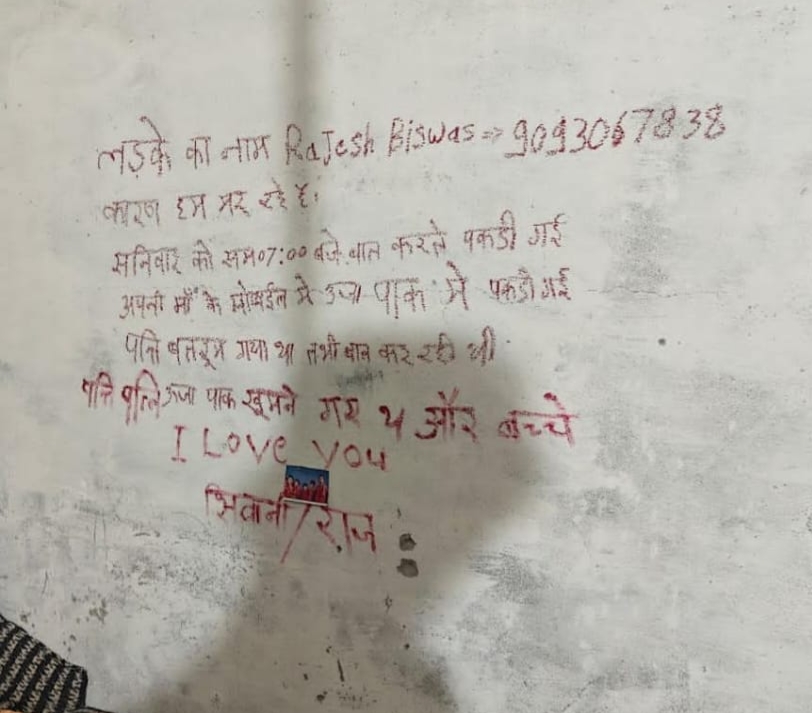 लड़के का नाम RaJesh Biswas => 9093067838
कारण हम मर रहे है।
सनिवार को सम07:00 बजे बात करते पकडी गई
अपनी माँ के मोबाईल से ऊजा पाक मे पकडी गई
पति बतरूम गया था तभी बात कर रही थी
पति पत्नि ऊजा पाक घूमने गए थ और बच्चे
I Love you
शिवानी/राज